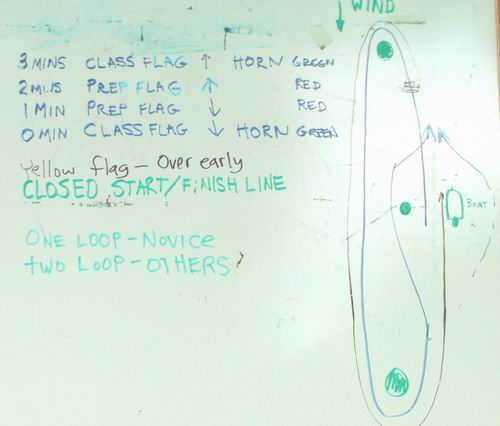 WIND
3 MINS CLASS FLAG ↑ HORN GREEN
2 MINS PREP FLAG ↑ RED
1 MIN PREP FLAG ↓ RED
0 MIN CLASS FLAG ↓ HORN GREEN
Yellow flag - Over early
CLOSED START/FINISH LINE
BOAT
ONE LOOP - NOVICE
TWO LOOP - OTHERS